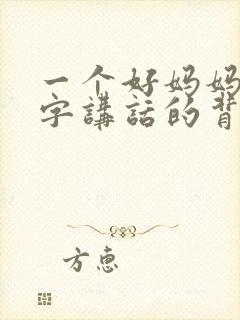 一个好妈妈
字講話的背
方惠